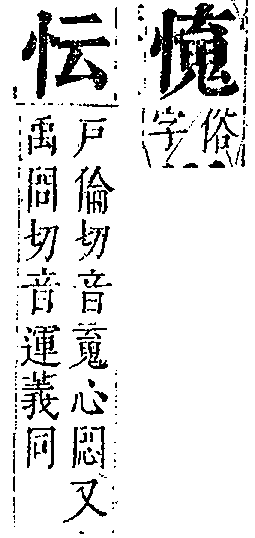 俗
字
忶
戶倫切音䰟心悶又
禹閏切音運義同